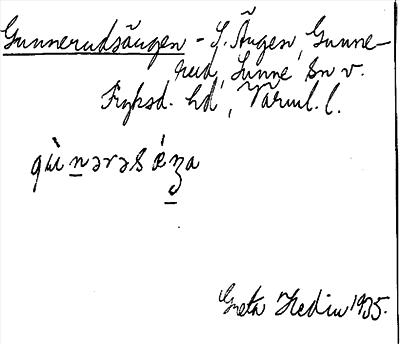 Gunnerudsängen - f. Ängen, Gunne-
rud, Sunne Sn v.
Fryksd. hd, Värml. l.
gɯ̀nərəsǽŋa
Greta Hedin 1935.